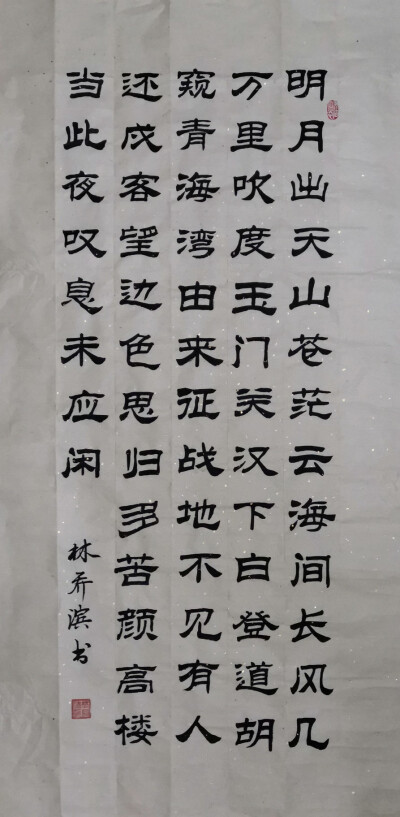 明月出天山苍茫云海间长风几
万里吹度玉门关汉下白登道胡
窥青海湾由来征战地不见有人
还戍客望边色思归多苦颜高楼
当此夜叹息未应闲
林滨书